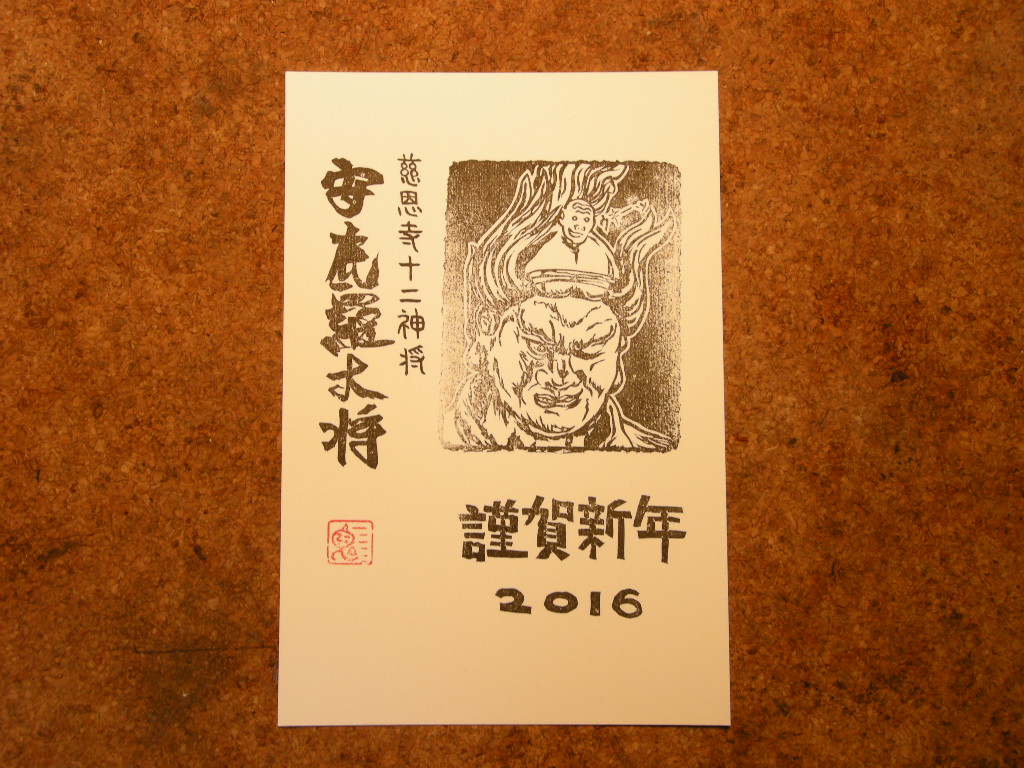 慈恩寺十二神将
安底羅大将
謹賀新年
2016